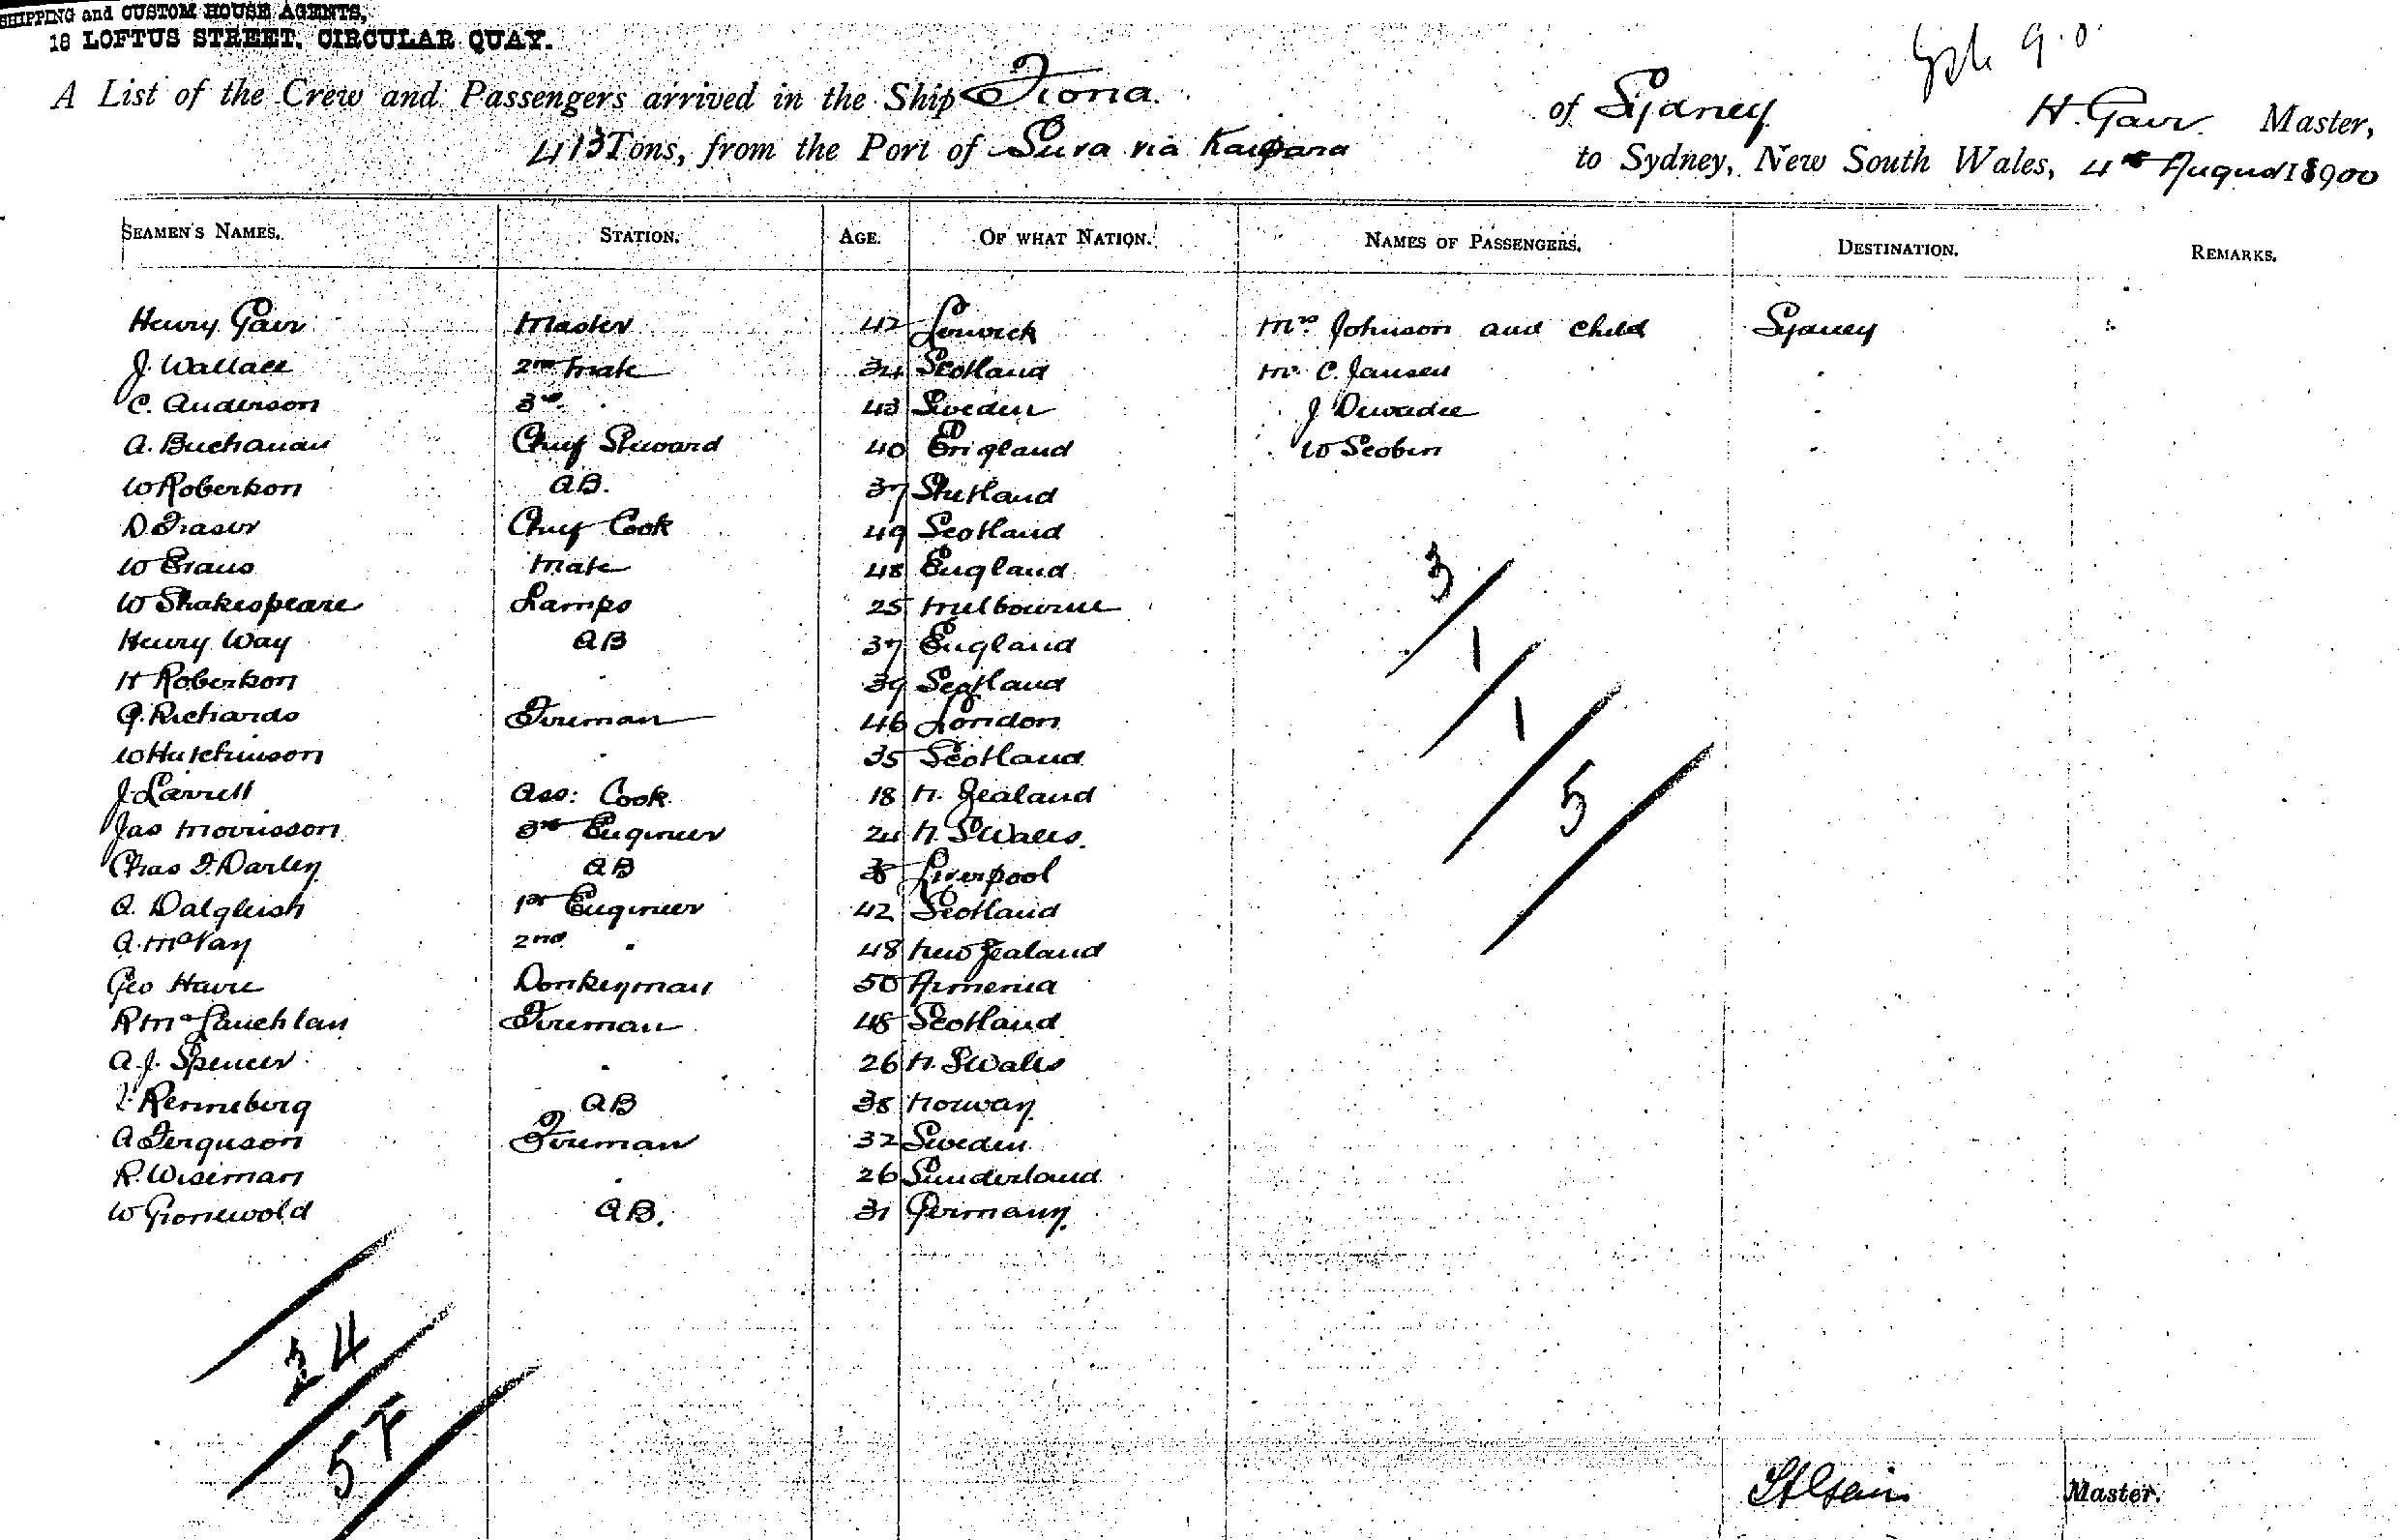 SHIPPING and CUSTOM HOUSE AGENTS,
18 LOFTUS STREET, CIRCULAR QUAY.
9.0
A List of the Crew and Passengers arrived in the Ship Fiona. of Sydney H. Gair Master,
413 Tons, from the Port of Suva via Kaipara to Sydney, New South Wales, 4th August 1900
SEAMEN'S NAMES. STATION. AGE. OF WHAT NATION. NAMES OF PASSENGERS. DESTINATION. REMARKS.
Henry Gair Master 42 Lerwick Mrs Johnson and child Sydney
J. Wallace 2nd Mate 34 Scotland Mr. C. Jansen "
C. Anderson 3rd " 43 Sweden " J "
A. Buchanan Chief Steward 40 England " W "
W Robertson AB. 37 Shetland
D Fraser Chief Cook 49 Scotland
W Evans Mate 48 England
W Shakespeare Lamps 25 Melbourne
Henry Way AB 37 England
H Robertson " 39 Scotland
G. Richards Fireman 46 London
W Hutchinson " 35 Scotland
J. Ass: Cook 18 N. Zealand
Jas Morrisson 3rd Engineer 24 N. S Wales.
Chas F. Darley AB 38 Liverpool
A. Dalgleish 1st Engineer 42 Scotland
A. McVay 2nd " 48 New Zealand
Geo Donkeyman 50 Armenia
R McLauchlan Fireman 48 Scotland
A. J. Spencer " 26 N. S Wales
Renneberg AB 38 Norway
A Ferguson Fireman 32 Sweden
R. Wiseman " 26 Sunderland
W Gronewold AB. 31 Germany
3
1
1
5
24
5
H Gair Master.